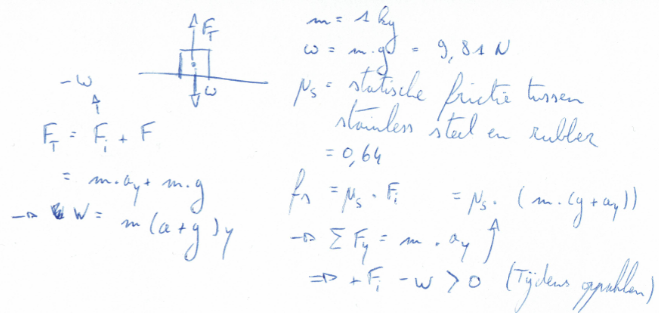 F_T
w
-w
↑
F_T = F_i + F
= m.a_y + m.g
→ w = m(a+g)y
m = 1 kg
w = m.g = 9,81 N
μ_s = statische frictie tussen
stainless steel en rubber
= 0,64
f_s = μ_s . F_i = μ_s . (m.(g+a_y))
→ Σ F_y = m . a_y
⇒ + F_i - w > 0 (Tijdens